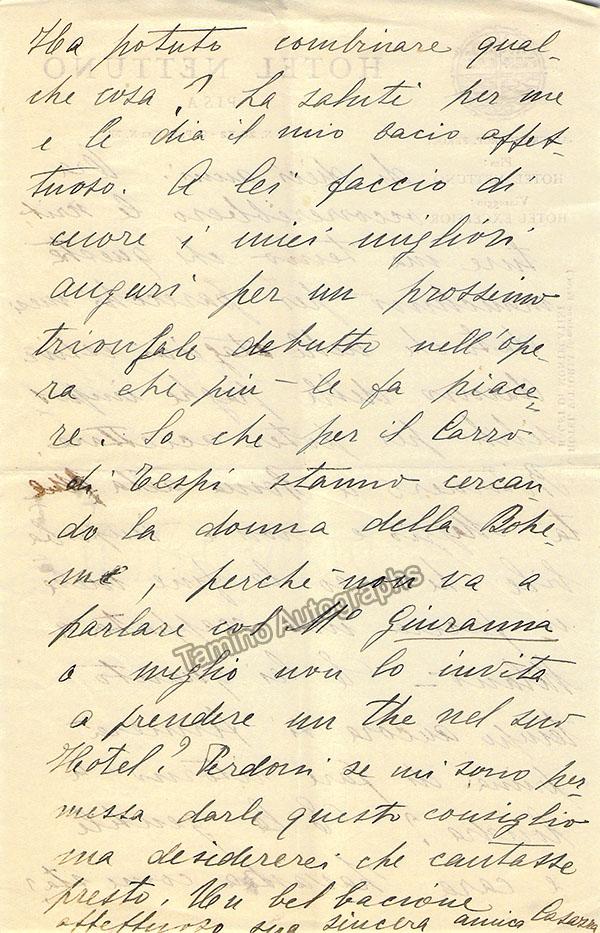 Ha potuto combinare qual-
che cosa? La saluti per me
e le dia il mio bacio affet-
tuoso. A lei faccio di
cuore i miei migliori
auguri per un prossimo
trionfale debutto nell'ope-
ra che piu le fa piace-
re. So che per il Carro
di Tespi stanno cercan-
do la donna della Bohe-
me, perche non va a
parlare col Mo Giuranna
o meglio non lo invita
a prendere un the nel suo
Hotel? Perdoni se mi sono per-
messa darle questo consiglio
ma desidererei che cantasse
presto. Un bel bacione
affettuoso sua sincera amica Casazza
Tamino Autographs
HOTEL NETTUNO
PISA